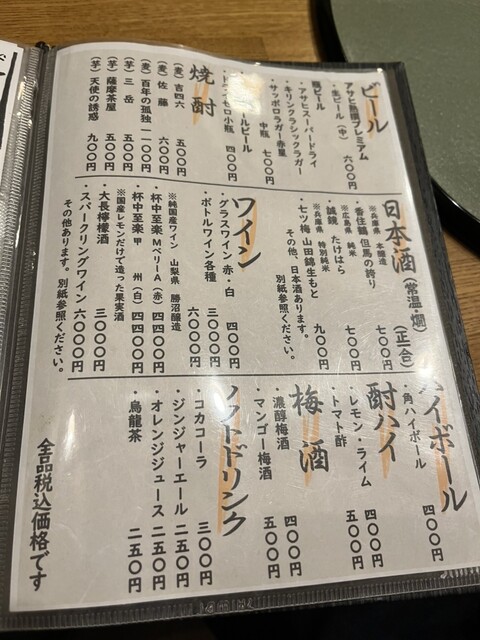 ビール
アサヒ熟撰プレミアム
・生ビール（中） 六〇〇円
瓶ビール
・アサヒスーパードライ
・キリンクラシックラガー
・サッポロラガー赤星
中瓶 七〇〇円
小瓶 四〇〇円
焼酎
（麦）吉四六 五〇〇円
（麦）佐藤 六〇〇円
（麦）百年の孤独 一一〇〇円
（芋）三岳 五〇〇円
（芋）薩摩茶屋 五〇〇円
（芋）天使の誘惑 九〇〇円
日本酒（常温・燗）（正一合）
※兵庫県 本醸造
・香住鶴 但馬の誇り 七〇〇円
※広島県 純米
・誠鏡 たけはら 七〇〇円
※兵庫県 特別純米
・七ツ梅 山田錦生もと 九〇〇円
その他、日本酒あります。
別紙参照ください。
ワイン
・グラスワイン 赤・白 四〇〇円
・ボトルワイン各種 三〇〇〇円
六〇〇〇円
※純国産ワイン 山梨県 勝沼醸造
・杯中至楽 MベリーA（赤） 四四〇〇円
・杯中至楽 甲 州（白） 四四〇〇円
※国産レモンだけで造った果実酒
・大長檸檬酒 三〇〇〇円
・スパークリングワイン 六〇〇〇円
その他あります。別紙参照ください。
ハイボール
・角ハイボール 四〇〇円
酎ハイ
・レモン・ライム 四〇〇円
・トマト酢 五〇〇円
梅酒
・濃醇梅酒 四〇〇円
・マンゴー梅酒 五〇〇円
ソフトドリンク
・コカコーラ 三〇〇円
・ジンジャーエール 二五〇円
・オレンジジュース 二五〇円
・烏龍茶 二五〇円
全品税込価格です